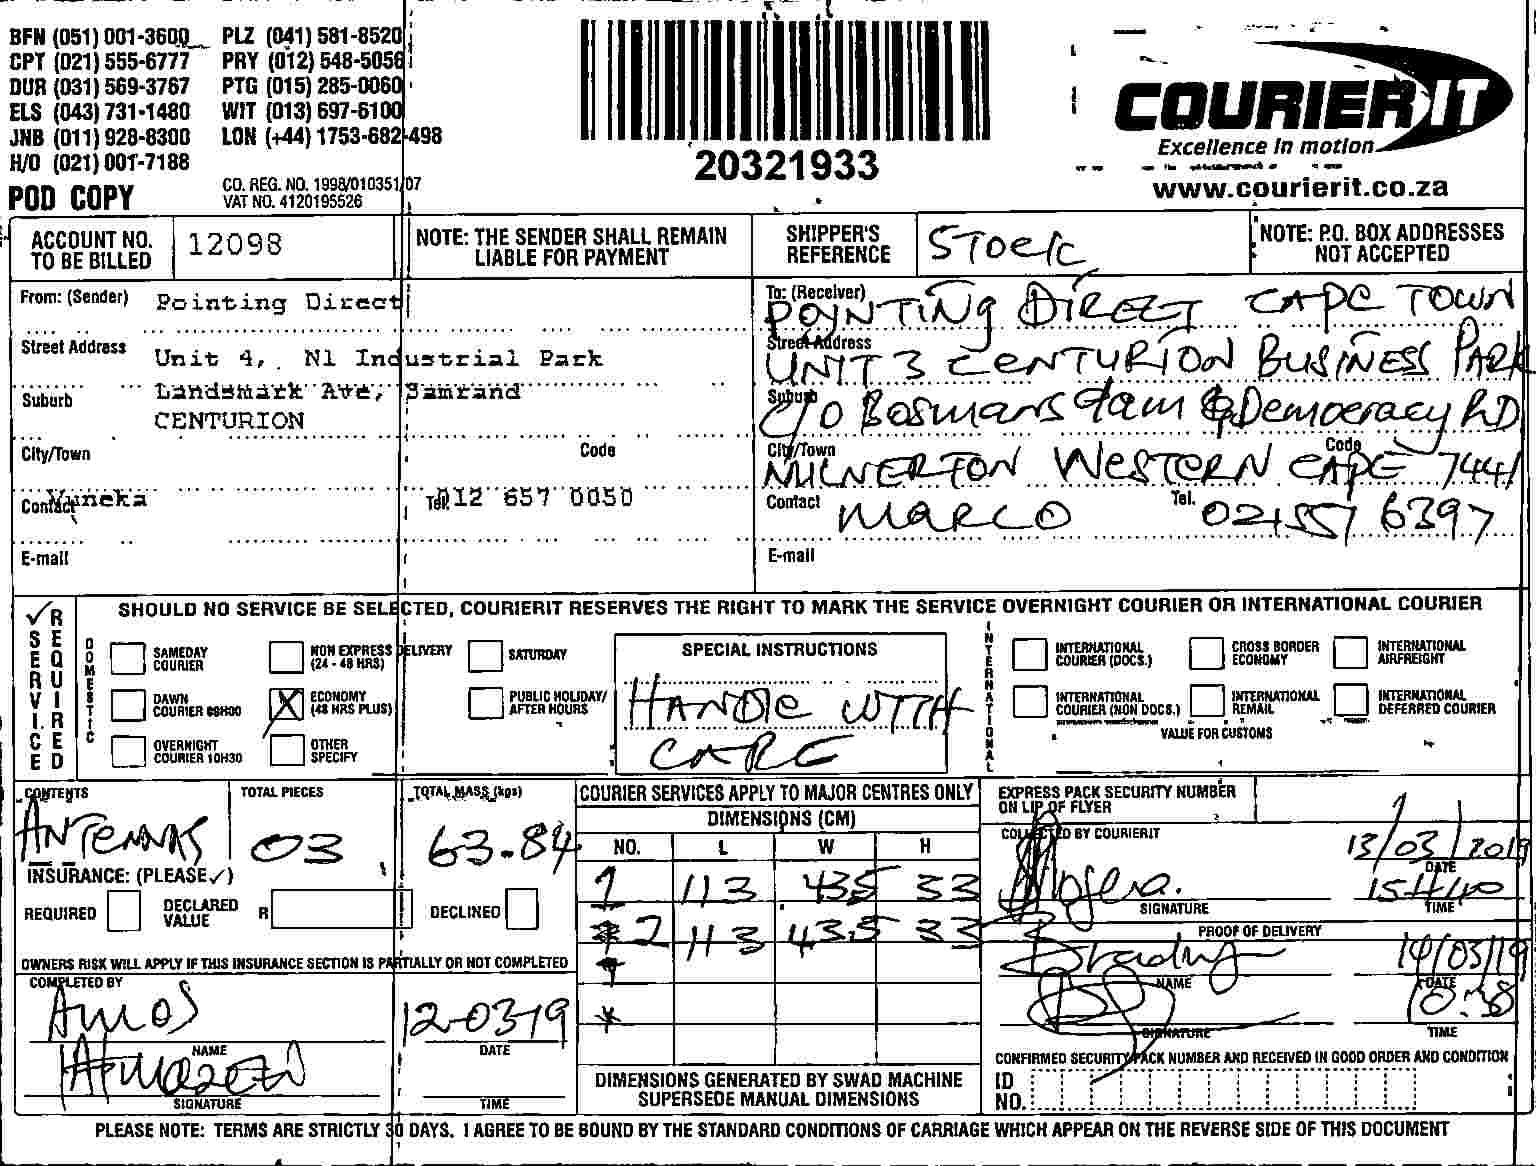 BFN (051) 001-3600 PLZ (041) 581-8520
CPT (021) 555-6777 PRY (012) 548-5056
DUR (031) 569-3767 PTG (015) 285-0060
ELS (043) 731-1480 WIT (013) 697-6100
JNB (011) 928-8300 LON (+44) 1753-682-498
H/O (021) 001-7188
POD COPY
CO. REG. NO. 1998/010351/07
VAT NO. 4120195526
20321933
COURIER IT
Excellence in motion
www.courierit.co.za
ACCOUNT NO. TO BE BILLED 12098
NOTE: THE SENDER SHALL REMAIN LIABLE FOR PAYMENT
SHIPPER'S REFERENCE STOCK
NOTE: P.O. BOX ADDRESSES NOT ACCEPTED
From: (Sender) Pointing Direct
Street Address Unit 4, N1 Industrial Park
Suburb Landsmark Ave, Samrand
CENTURION
City/Town Code
Contact Tel. 012 657 0050
E-mail
To: (Receiver) POYNTING DIRECT CAPE TOWN
Street Address UNIT 3 CENTURION BUSINESS PARK
Suburb C/O Bosmansdam & Democracy RD
City/Town MILNERTON WESTERN CAPE Code 7441
Contact MARCO Tel. 021 551 6397
E-mail
SERVICE REQUIRED
SHOULD NO SERVICE BE SELECTED, COURIERIT RESERVES THE RIGHT TO MARK THE SERVICE OVERNIGHT COURIER OR INTERNATIONAL COURIER
DOMESTIC
SAMEDAY COURIER
NON EXPRESS DELIVERY (24 - 48 HRS)
SATURDAY
DAWN COURIER 09H00
X ECONOMY (48 HRS PLUS)
PUBLIC HOLIDAY/ AFTER HOURS
OVERNIGHT COURIER 10H30
OTHER SPECIFY
SPECIAL INSTRUCTIONS
HANDLE WITH
CARE
INTERNATIONAL
INTERNATIONAL COURIER (DOCS.)
CROSS BORDER ECONOMY
INTERNATIONAL AIRFREIGHT
INTERNATIONAL COURIER (NON DOCS.)
INTERNATIONAL REMAIL
INTERNATIONAL DEFERRED COURIER
VALUE FOR CUSTOMS
CONTENTS ANTENNAS
TOTAL PIECES 03
TOTAL MASS (kgs) 63.84
INSURANCE: (PLEASE ✓)
REQUIRED DECLARED VALUE R DECLINED
OWNERS RISK WILL APPLY IF THIS INSURANCE SECTION IS PARTIALLY OR NOT COMPLETED
COMPLETED BY
AMOS 12-03-19
NAME DATE
SIGNATURE TIME
COURIER SERVICES APPLY TO MAJOR CENTRES ONLY
DIMENSIONS (CM)
NO. L W H
1 113 43.5 33
2 113 43.5 33
DIMENSIONS GENERATED BY SWAD MACHINE
SUPERSEDE MANUAL DIMENSIONS
EXPRESS PACK SECURITY NUMBER ON LIP OF FLYER
COLLECTED BY COURIERIT
13/03/2019
DATE
15H40
SIGNATURE TIME
PROOF OF DELIVERY
14/03/19
NAME DATE
10:38
SIGNATURE TIME
CONFIRMED SECURITY PACK NUMBER AND RECEIVED IN GOOD ORDER AND CONDITION
ID NO.
PLEASE NOTE: TERMS ARE STRICTLY 30 DAYS. I AGREE TO BE BOUND BY THE STANDARD CONDITIONS OF CARRIAGE WHICH APPEAR ON THE REVERSE SIDE OF THIS DOCUMENT